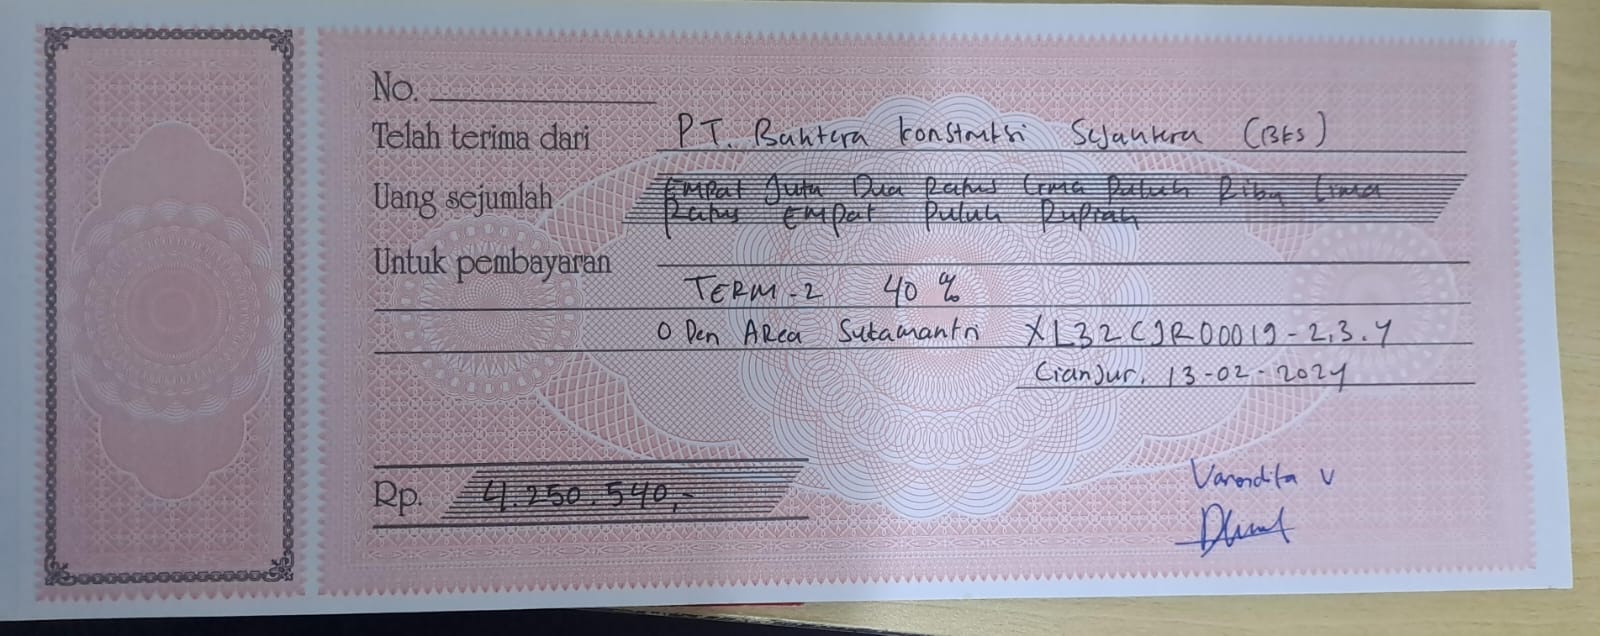 No.
Telah terima dari PT. Bahtera Konstruksi Sejahtera (BKS)
Uang sejumlah Empat Juta Dua Ratus Lima Puluh Ribu Lima
Ratus Empat Puluh Rupiah
Untuk pembayaran
TERM-2 40 %
O Den Area Sukamantri XL32CJR00019-2,3.4
Cianjur, 13-02-2024
Rp. 4.250.540,-
Varendita V